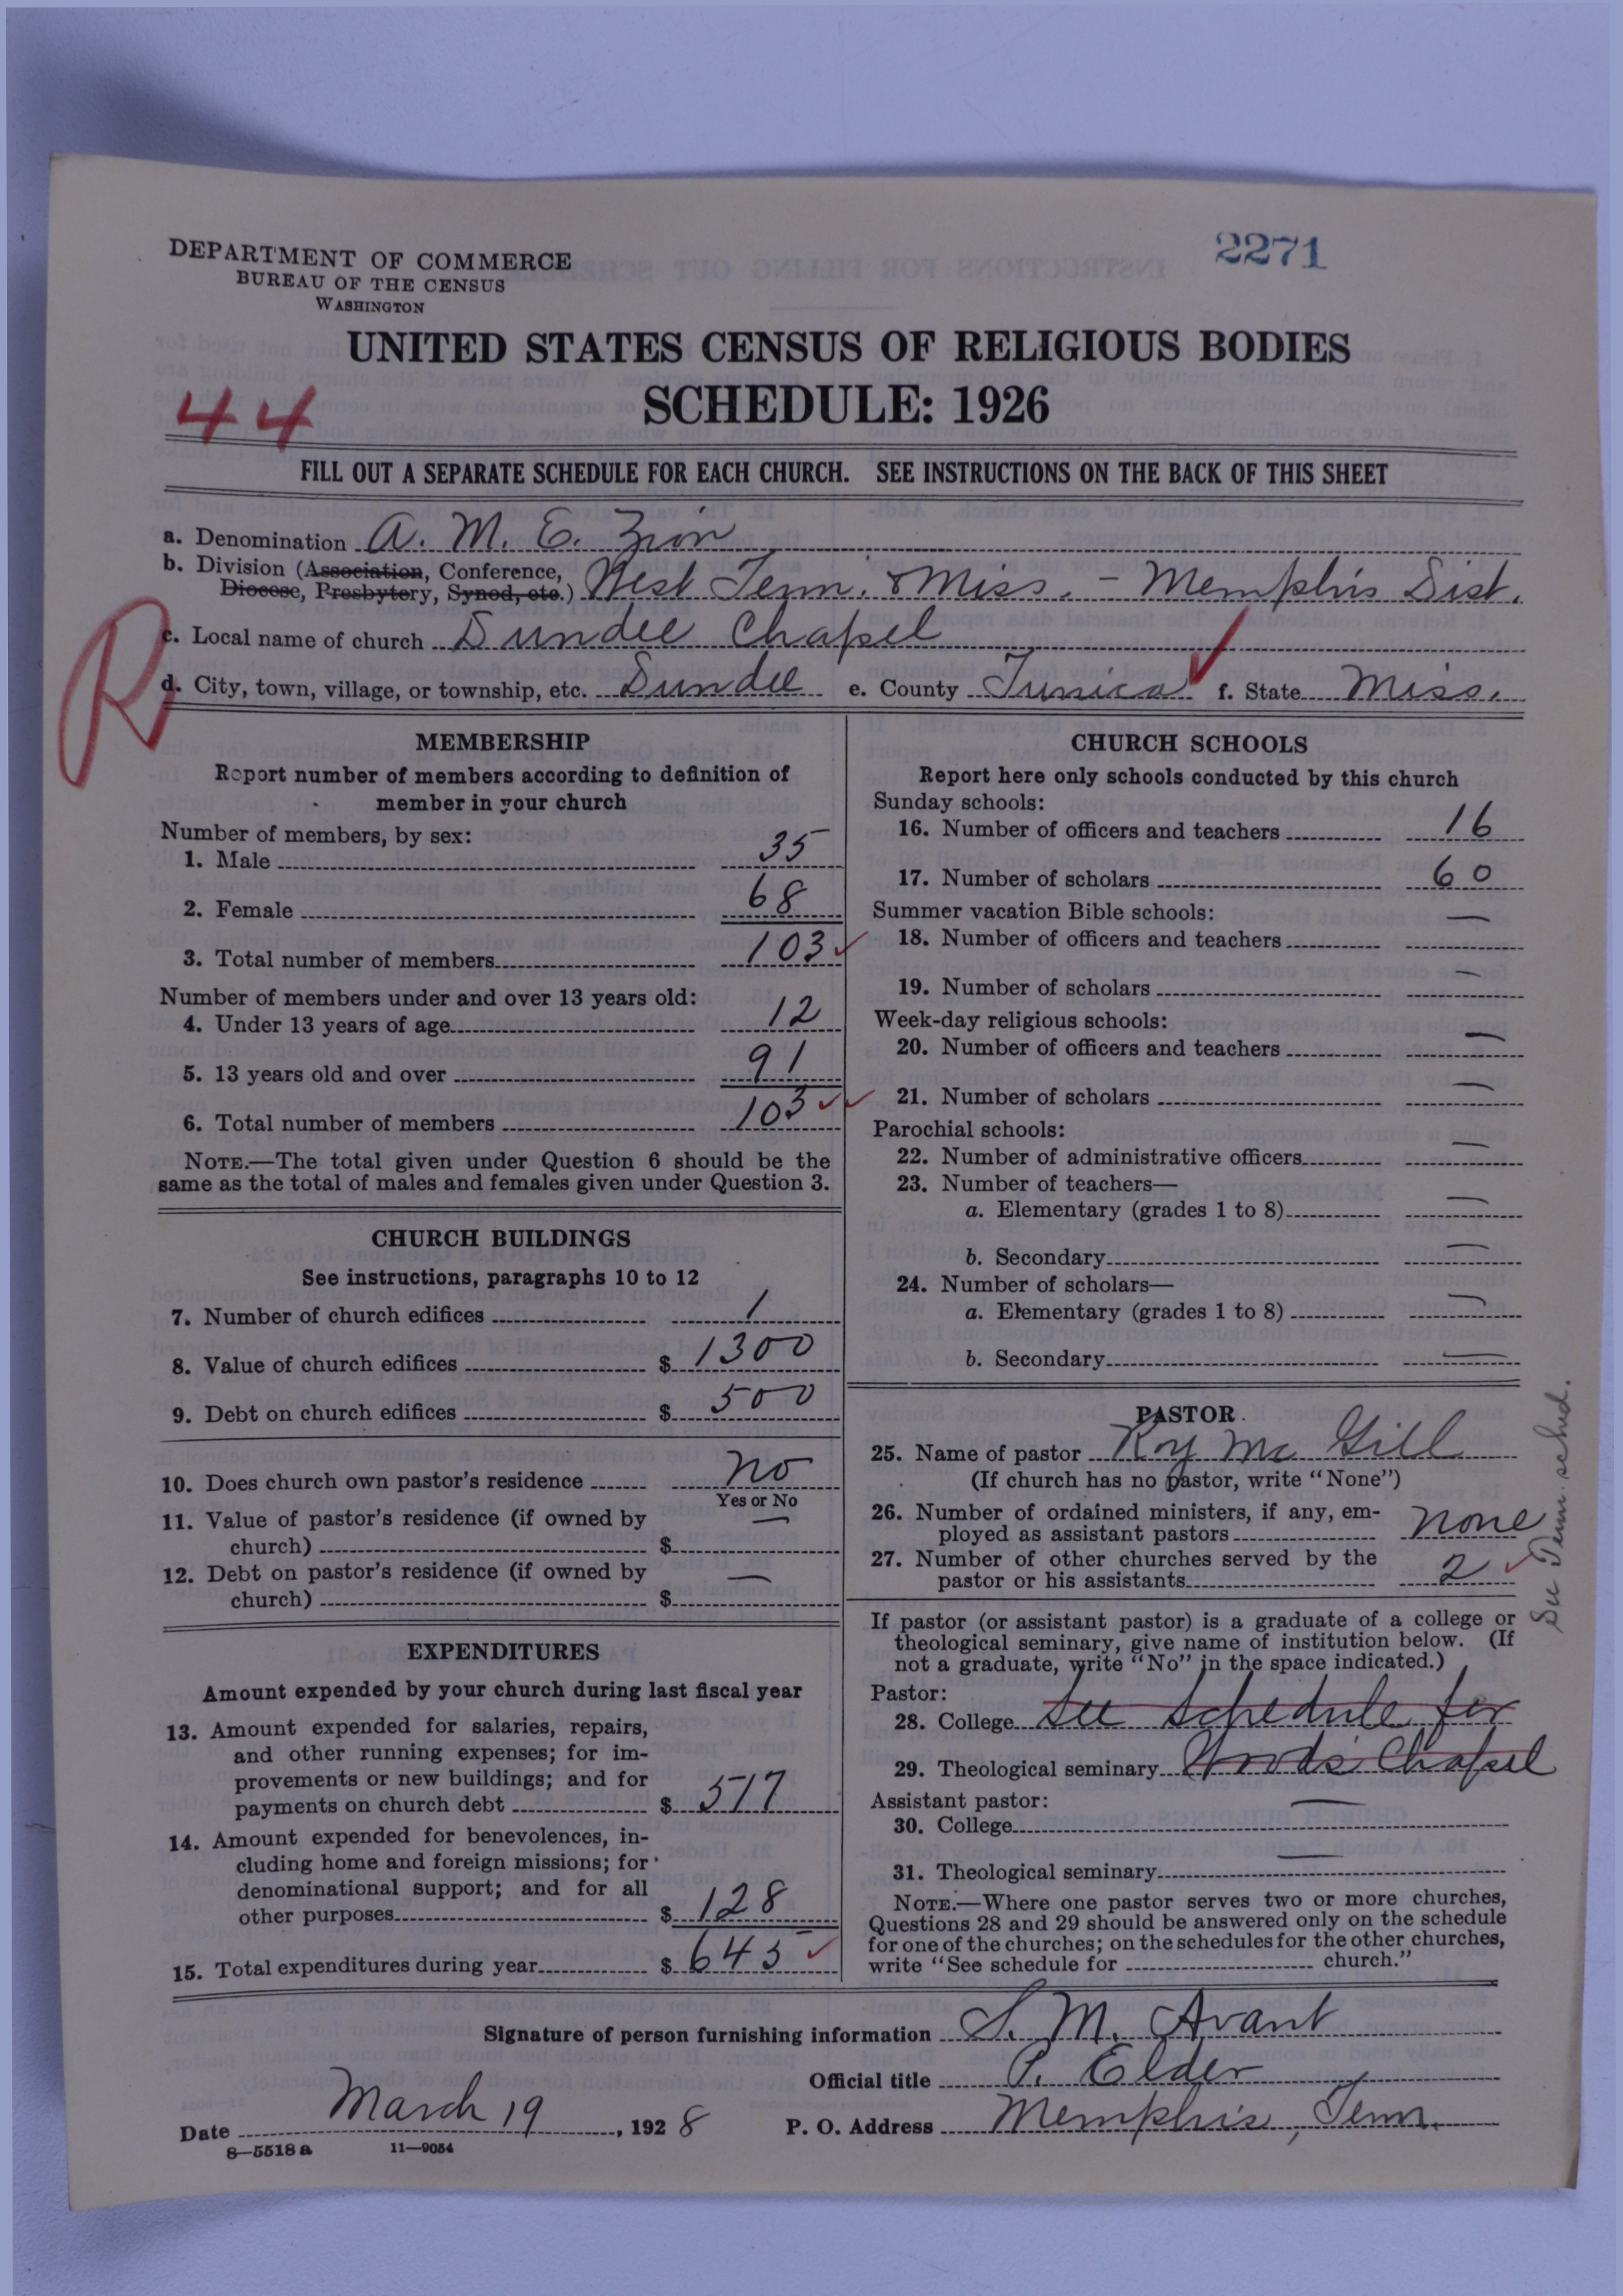 DEPARTMENT OF COMMERCE
BUREAU OF THE CENSUS
WASHINGTON
2271
UNITED STATES CENSUS OF RELIGIOUS BODIES
SCHEDULE: 1926
44
FILL OUT A SEPARATE SCHEDULE FOR EACH CHURCH. SEE INSTRUCTIONS ON THE BACK OF THIS SHEET
a. Denomination A. M. E. Zion
b. Division (Association, Conference,
Diocese, Presbytery, Synod, etc.) West Tenn. & Miss. - Memphis Dist.
R
c. Local name of church Dundee Chapel
d. City, town, village, or township, etc. Dundee e. County Tunica f. State Miss.
MEMBERSHIP
Report number of members according to definition of
member in your church
Number of members, by sex:
1. Male 35
2. Female 68
3. Total number of members 103
Number of members under and over 13 years old:
4. Under 13 years of age 12
5. 13 years old and over 91
6. Total number of members 103
NOTE.—The total given under Question 6 should be the
same as the total of males and females given under Question 3.
CHURCH BUILDINGS
See instructions, paragraphs 10 to 12
7. Number of church edifices 1
8. Value of church edifices $ 1300
9. Debt on church edifices $ 500
10. Does church own pastor's residence No
Yes or No
11. Value of pastor's residence (if owned by
church) $ —
12. Debt on pastor's residence (if owned by
church) $ —
EXPENDITURES
Amount expended by your church during last fiscal year
13. Amount expended for salaries, repairs,
and other running expenses; for im-
provements or new buildings; and for
payments on church debt $ 517
14. Amount expended for benevolences, in-
cluding home and foreign missions; for
denominational support; and for all
other purposes $ 128
15. Total expenditures during year $ 645
CHURCH SCHOOLS
Report here only schools conducted by this church
Sunday schools:
16. Number of officers and teachers 16
17. Number of scholars 60
Summer vacation Bible schools:
18. Number of officers and teachers —
19. Number of scholars —
Week-day religious schools:
20. Number of officers and teachers —
21. Number of scholars —
Parochial schools:
22. Number of administrative officers —
23. Number of teachers—
a. Elementary (grades 1 to 8) —
b. Secondary —
24. Number of scholars—
a. Elementary (grades 1 to 8) —
b. Secondary —
PASTOR
25. Name of pastor Roy Mc Gill
(If church has no pastor, write "None")
26. Number of ordained ministers, if any, em-
ployed as assistant pastors none
27. Number of other churches served by the
pastor or his assistants 2
See Tenn. sched.
If pastor (or assistant pastor) is a graduate of a college or
theological seminary, give name of institution below. (If
not a graduate, write "No" in the space indicated.)
Pastor:
28. College See Schedule for
29. Theological seminary Woods Chapel
Assistant pastor:
30. College —
31. Theological seminary —
NOTE.—Where one pastor serves two or more churches,
Questions 28 and 29 should be answered only on the schedule
for one of the churches; on the schedules for the other churches,
write "See schedule for church."
Signature of person furnishing information S. M. Avant
Official title P. Elder
Date March 19, 1928 P. O. Address Memphis, Tenn.
8—5518a 11—9054